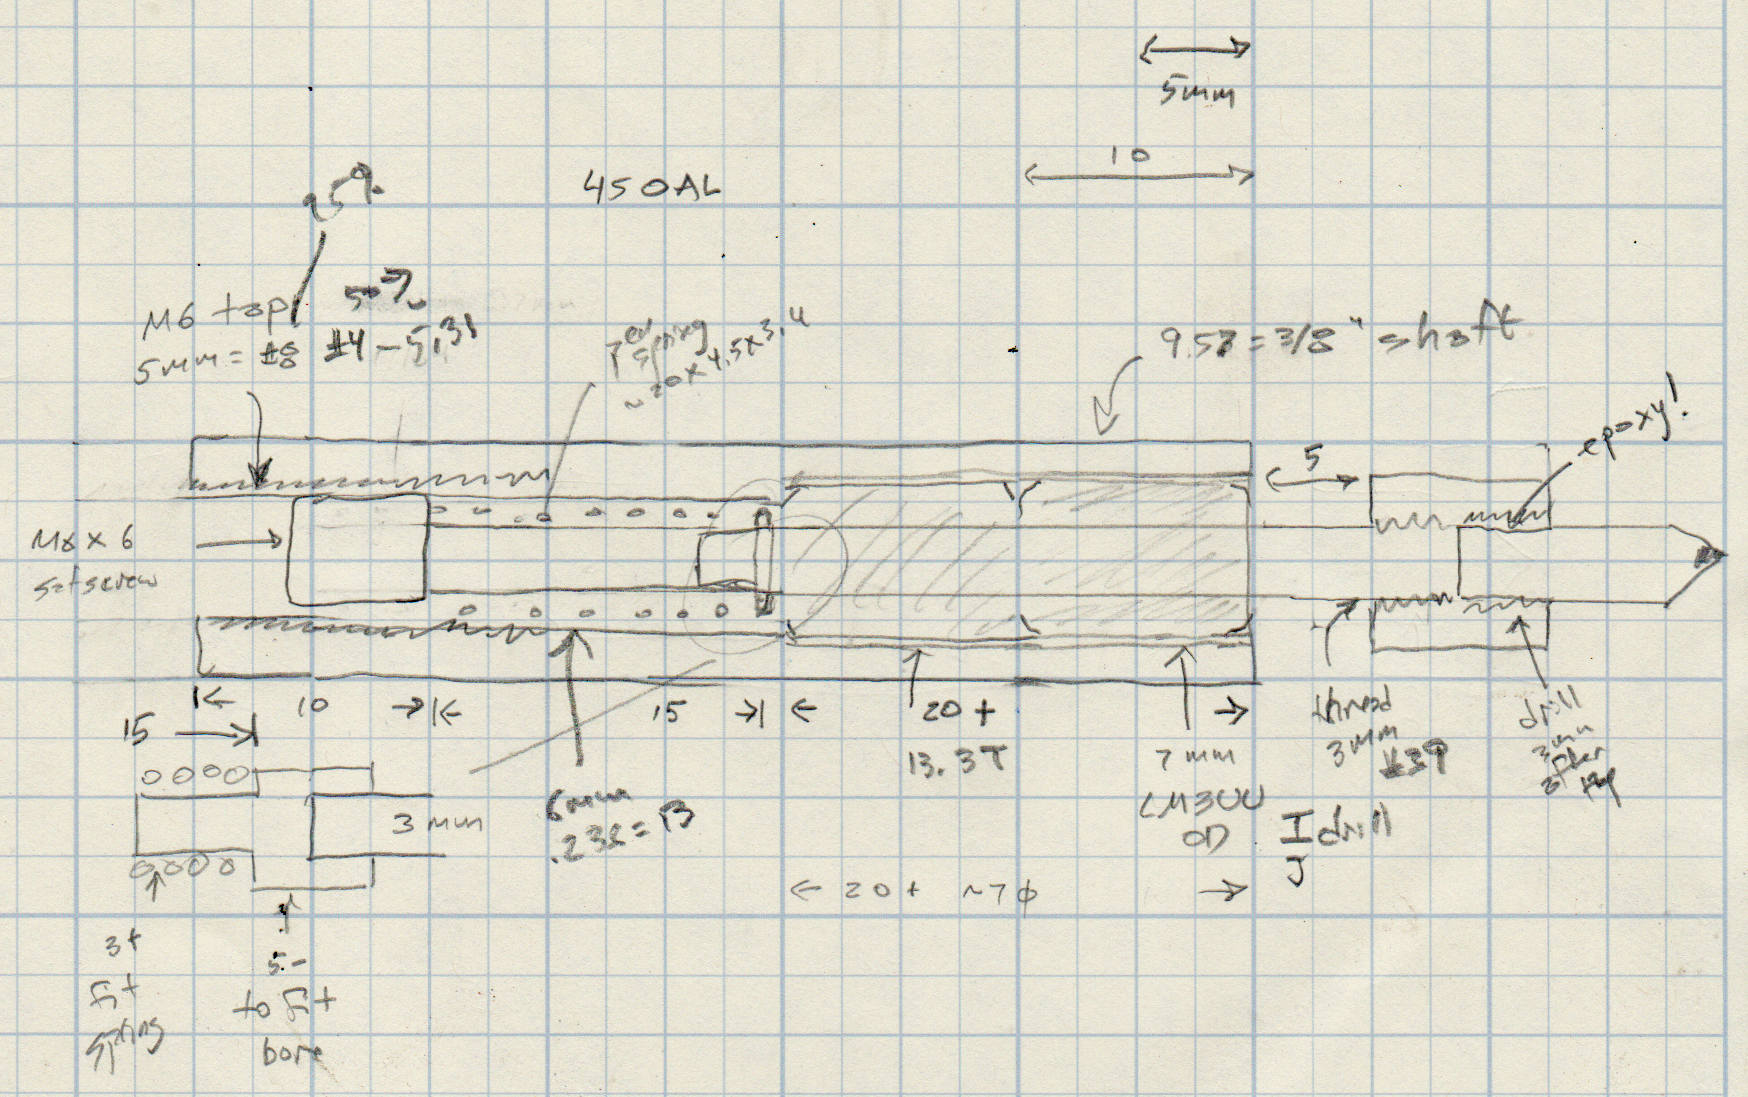 5mm
10
450AL
M6 tap
5mm = #8
#4 - 5.31
spring
~20 x 4.5 x 3.4
9.53 = 3/8" shaft
epoxy!
5
M6 x 6
setscrew
10
15
20+
13.3T
7mm
LM3UU
OD
I drill
J
thread
3mm
#39
drill
3mm
after
tap
15
3mm
6mm
← 20+ ~7φ →
3+
fit
spring
5-
to fit
bore